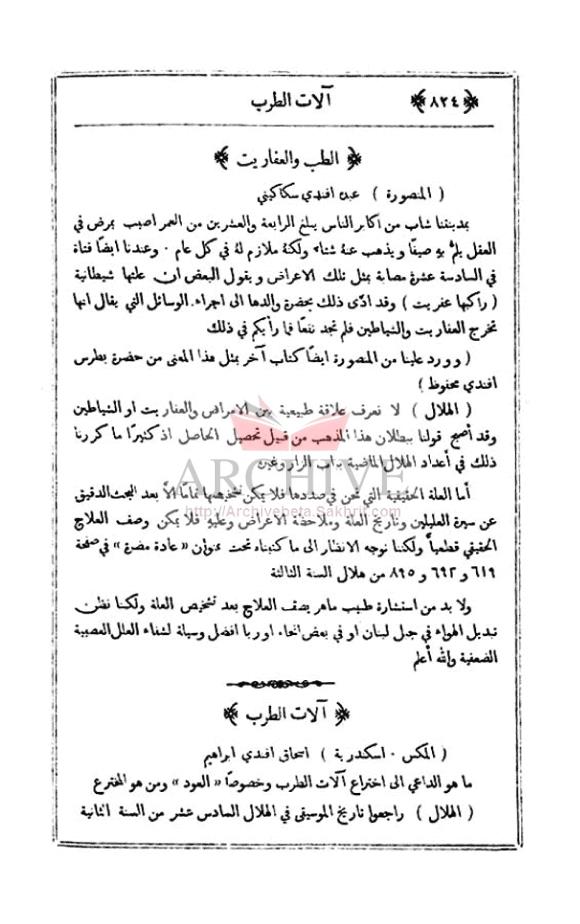 ﴿٨٢٤﴾ آلات الطرب
﴿ الطب والعفاريت ﴾
( المنصورة ) عبده افندي سكاكيني
بمدينتنا شاب من اكابر الناس يبلغ الرابعة والعشرين من العمر اصيب بمرض في
العقل يلمُّ بهِ صيفًا ويذهب عنهُ شتاءً ولكنهُ ملازم لهُ في كل عام ٠ وعندنا ايضًا فتاة
في السادسة عشرة مصابة بمثل تلك الاعراض ويقول البعض ان عليها شيطانية
( راكبها عفريت ) وقد ادَّى ذلك بحضرة والدها الى اجراء الوسائل التي يقال انها
تخرج العفاريت والشياطين فلم تجد نفعًا فما رأيكم في ذلك
( وورد علينا من المنصورة ايضًا كتاب آخر بمثل هذا المعنى من حضرة بطرس
افندي محفوظ )
( الهلال ) لا نعرف علاقة طبيعية بين الامراض والعفاريت او الشياطين
وقد أصبح قولنا ببطلان هذا المذهب من قبيل تحصيل الحاصل اذ كثيرًا ما كررنا
ذلك في أعداد الهلال الماضية بباب الزار وغيره
أما العلة الحقيقية التي نحن في صددها فلا يمكن تشخيصها تمامًا الاَّ بعد البحث الدقيق
عن سيرة العليلين وتاريخ العلة وملاحظة الاعراض وعليهِ فلا يمكن وصف العلاج
الحقيقي قطعياً ولكننا نوجه الانظار الى ما كتبناه تحت عنوان « عادة مضرة » في صفحة
٦١٩ و ٦٩٢ و ٨٩٥ من هلال السنة الثالثة
ولا بد من استشارة طبيب ماهر يصف العلاج بعد تشخيص العلة ولكننا نظن
تبديل الهواء في جبل لبنان او في بعض انحاء اوربا افضل وسيلة لشفاء العلل العصبية
الضعفية والله أعلم
﴿ آلات الطرب ﴾
( المكس ٠ اسكندرية ) اسحاق افندي ابراهيم
ما هو الداعي الى اختراع آلات الطرب وخصوصًا « العود » ومن هو المخترع
( الهلال ) راجعوا تاريخ الموسيقى في الهلال السادس عشر من السنة الثانية
ARCHIVE
http://Archivebeta.Sakhrit.com